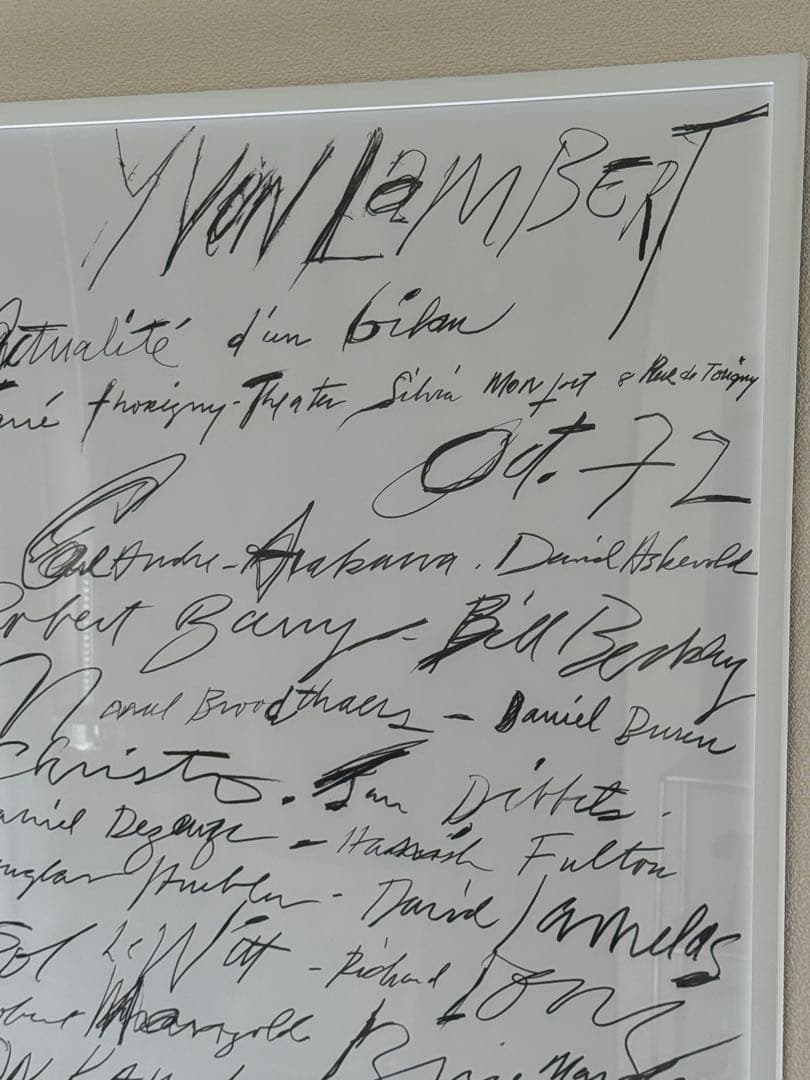 YVON LAMBERT
Actualité d'un bilan
Thorigny-Theater Silvia Monfort 8 Rue de Torigny
Oct. 72
Carl Andre - Arakawa. David Askevold
Robert Barry - Bill Beckley
Marcel Broodthaers - Daniel Buren
Christo. Jan Dibbets.
Daniel Dezeuze - Hamish Fulton
Douglas Huebler - David Lamelas
Sol LeWitt - Richard Long
Robert Mangold
On Kawara Brice Mar